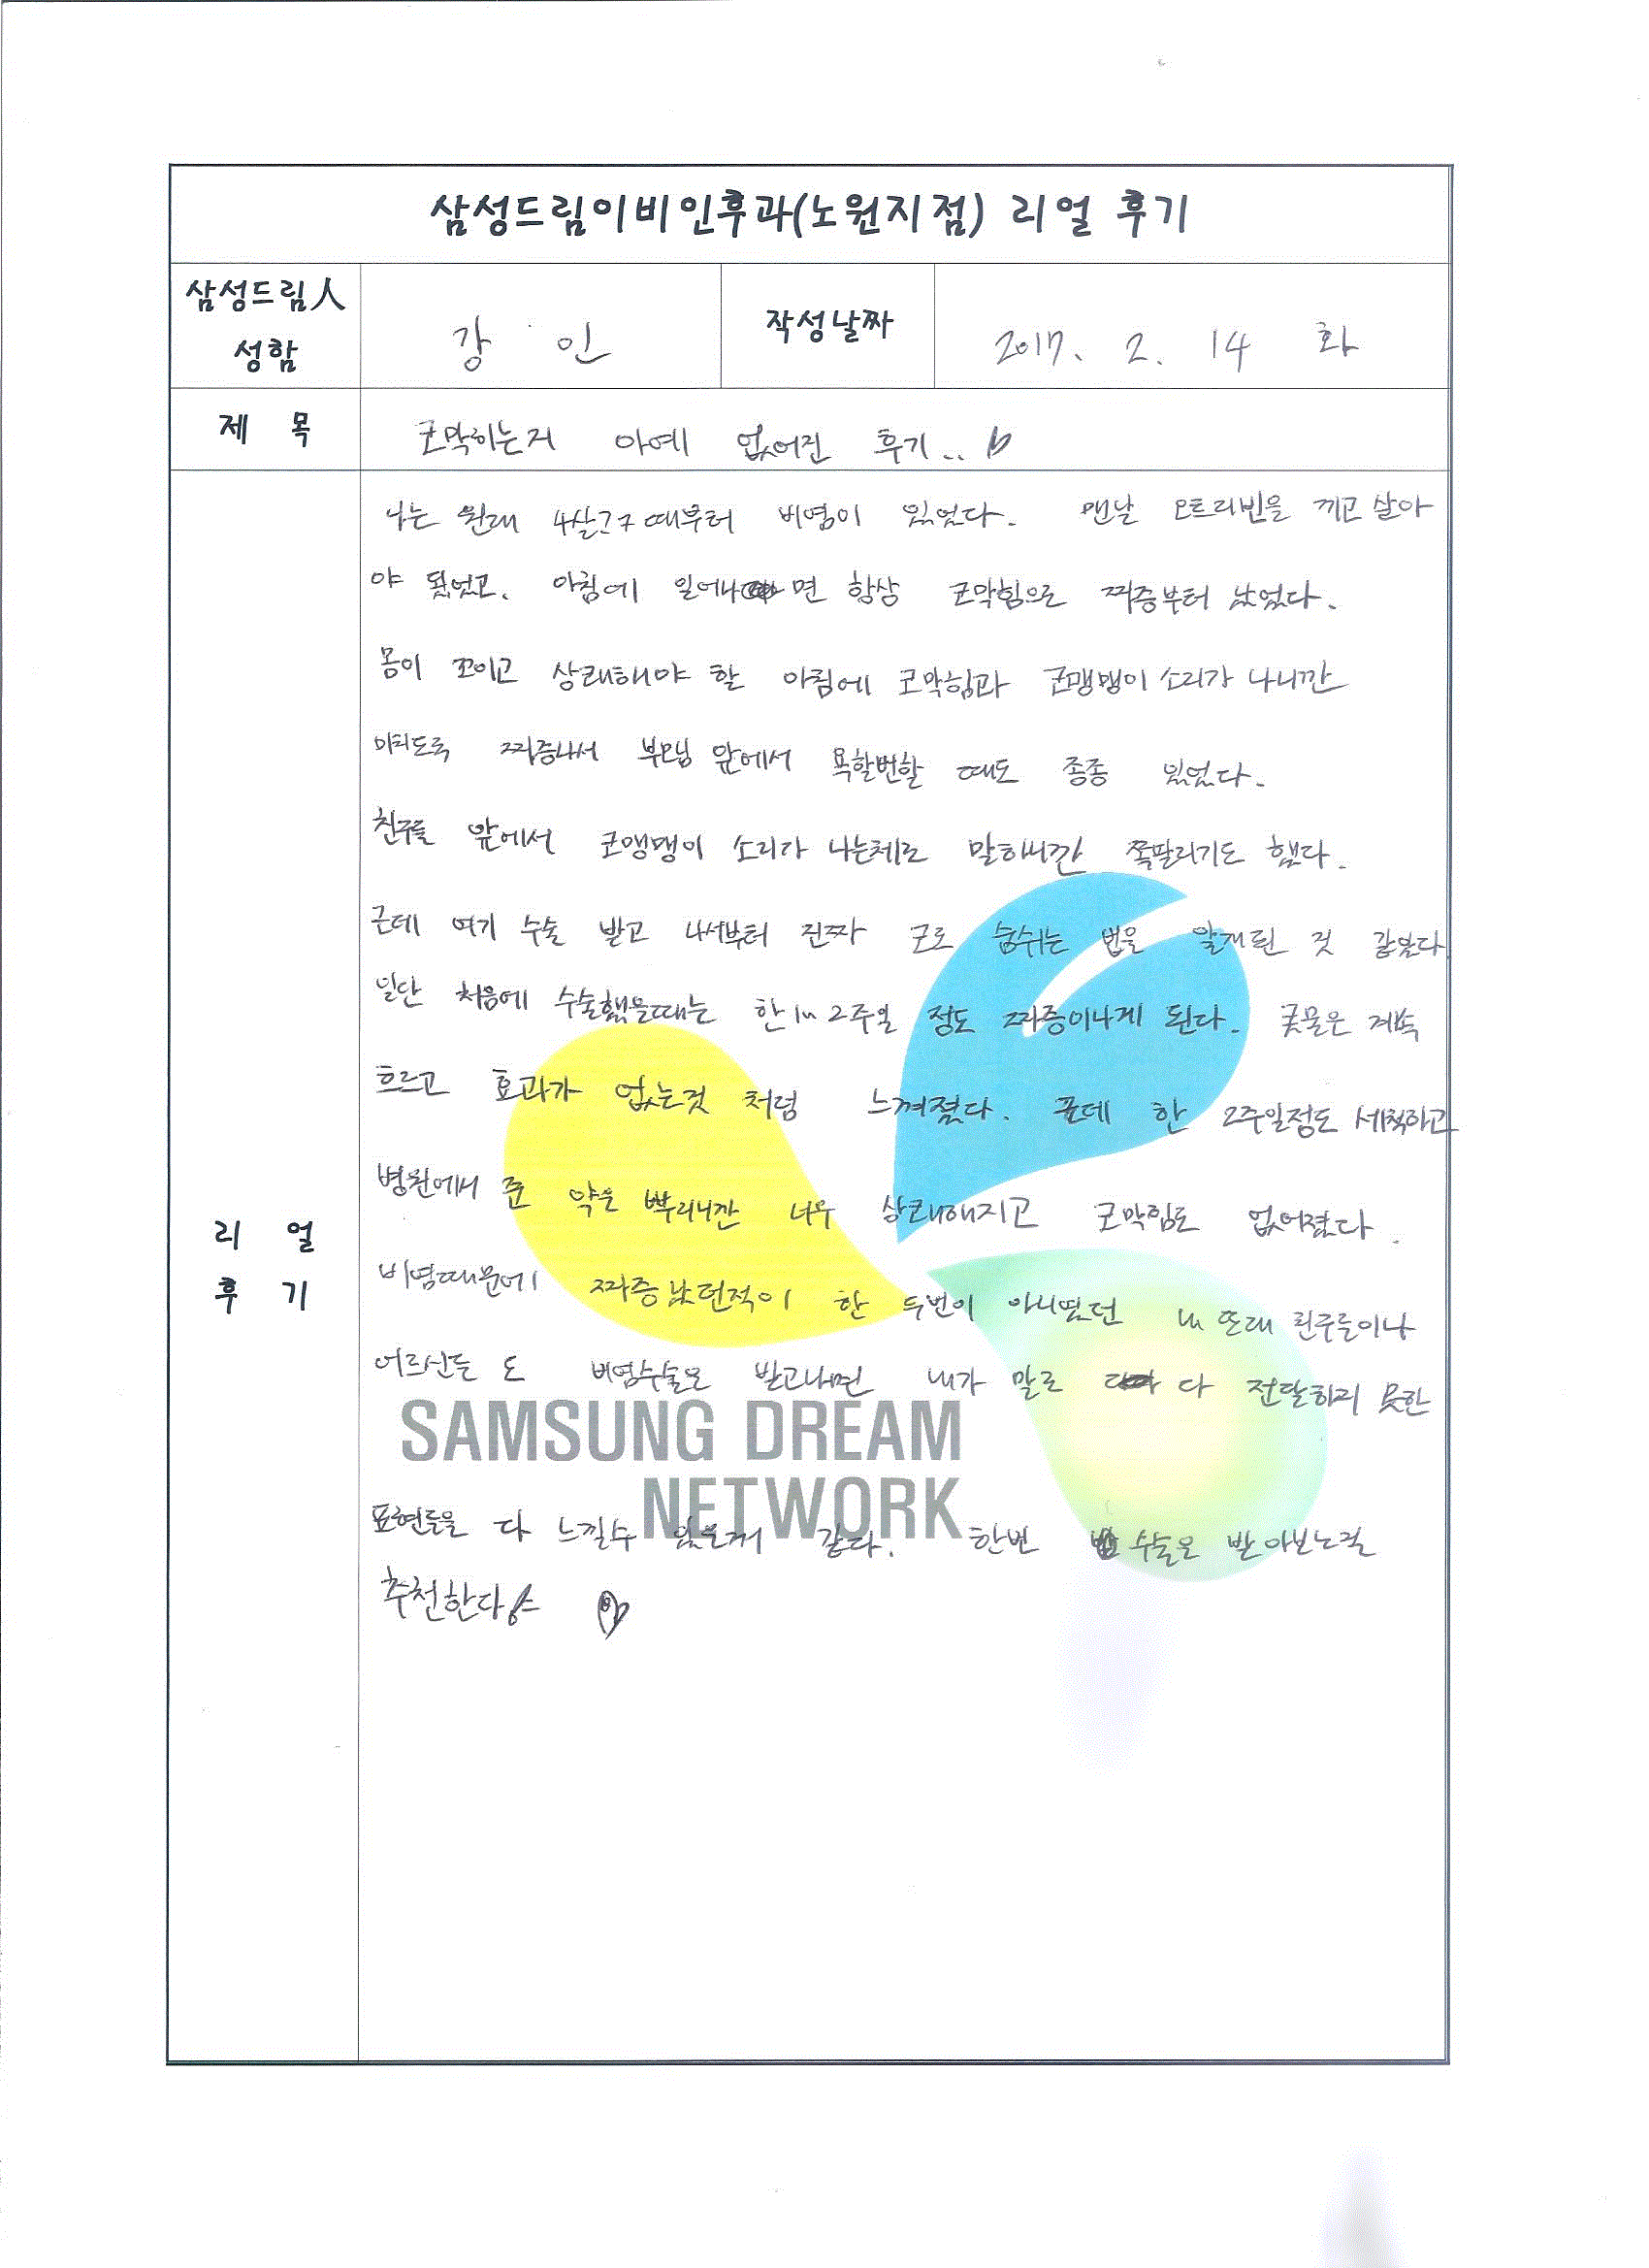 삼성드림이비인후과(노원지점) 리얼 후기
삼성드림人 성함
강 인
작성날짜
2017. 2. 14 화
제 목
코막히는거 아예 없어진 후기..
리 얼 후 기
나는 원래 4살근구때부터 비염이 있었다. 맨날 오트리빈을 끼고 살아
야 됬었고. 아침에 일어나면 항상 코막힘으로 짜증부터 났었다.
몸이 꼬이고 상쾌해야 할 아침에 코막힘과 코맹맹이 소리가 나니깐
미치도록 짜증나서 부모님 앞에서 욕할번할 때도 종종 있었다.
친구들 앞에서 코맹맹이 소리가 나는체로 말하니깐 쪽팔리기도 했다.
근데 여기 수술 받고 나서부터 진짜 코로 숨쉬는 법을 알게된 것 같았다
일단 처음에 수술했을때는 한 1~2주일 정도 짜증이나게 된다. 콧물은 계속
흐르고 효과가 없는것 처럼 느껴졌다. 근데 한 2주일정도 세척하고
병원에서 준 약을 뿌리니깐 너무 상쾌해지고 코막힘도 없어졌다.
비염때문에 짜증났던적이 한 두번이 아니였던 내 또래 친구들이나
어르신들 도 비염수술을 받고나면 내가 말로 다 전달하지 못한
SAMSUNG DREAM
NETWORK
표현들을 다 느낄수 있을거 같다. 한번 수술을 받아보는걸
추천한다